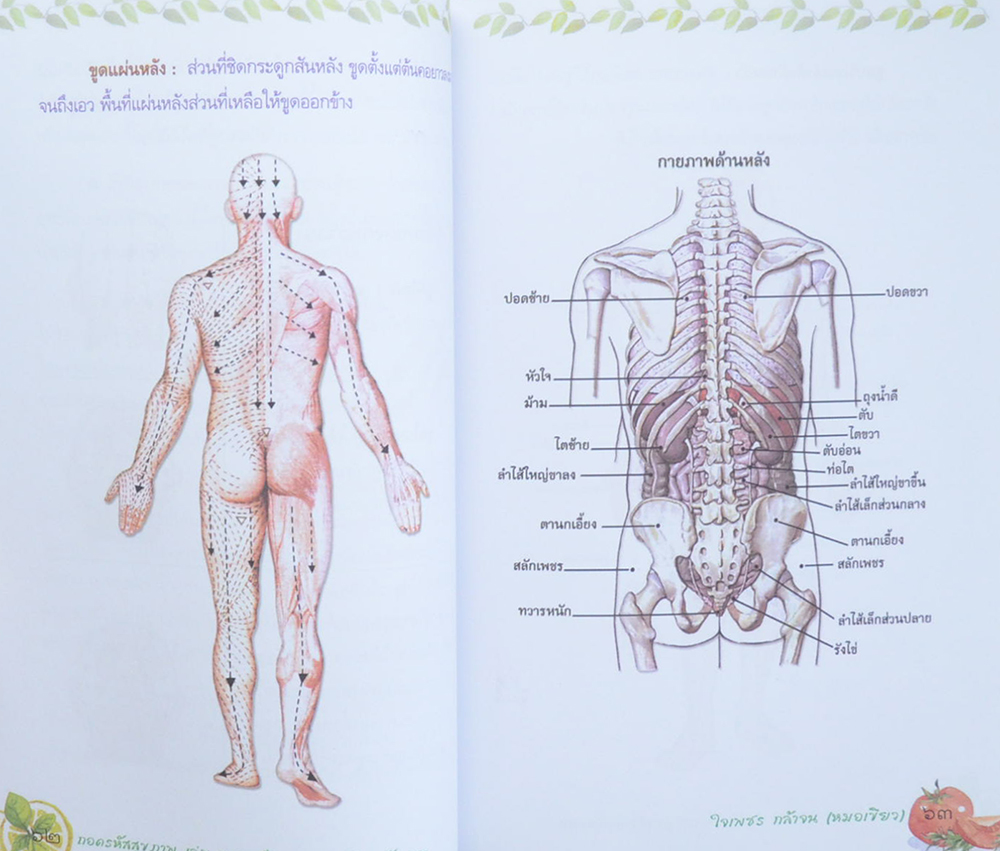 ขูดแผ่นหลัง : ส่วนที่ชิดกระดูกสันหลัง ขูดตั้งแต่ต้นคอยาวลง
จนถึงเอว พื้นที่แผ่นหลังส่วนที่เหลือให้ขูดออกข้าง
๖๒ ถอดรหัสสุขภาพ
กายภาพด้านหลัง
ปอดซ้าย
ปอดขวา
หัวใจ
ม้าม
ถุงน้ำดี
ตับ
ไตขวา
ไตซ้าย
ตับอ่อน
ท่อไต
ลำไส้ใหญ่ขาลง
ลำไส้ใหญ่ขาขึ้น
ลำไส้เล็กส่วนกลาง
ตานกเอี้ยง
ตานกเอี้ยง
สลักเพชร
สลักเพชร
ทวารหนัก
ลำไส้เล็กส่วนปลาย
รังไข่
ใจเพชร กล้าจน (หมอเขียว) ๖๓